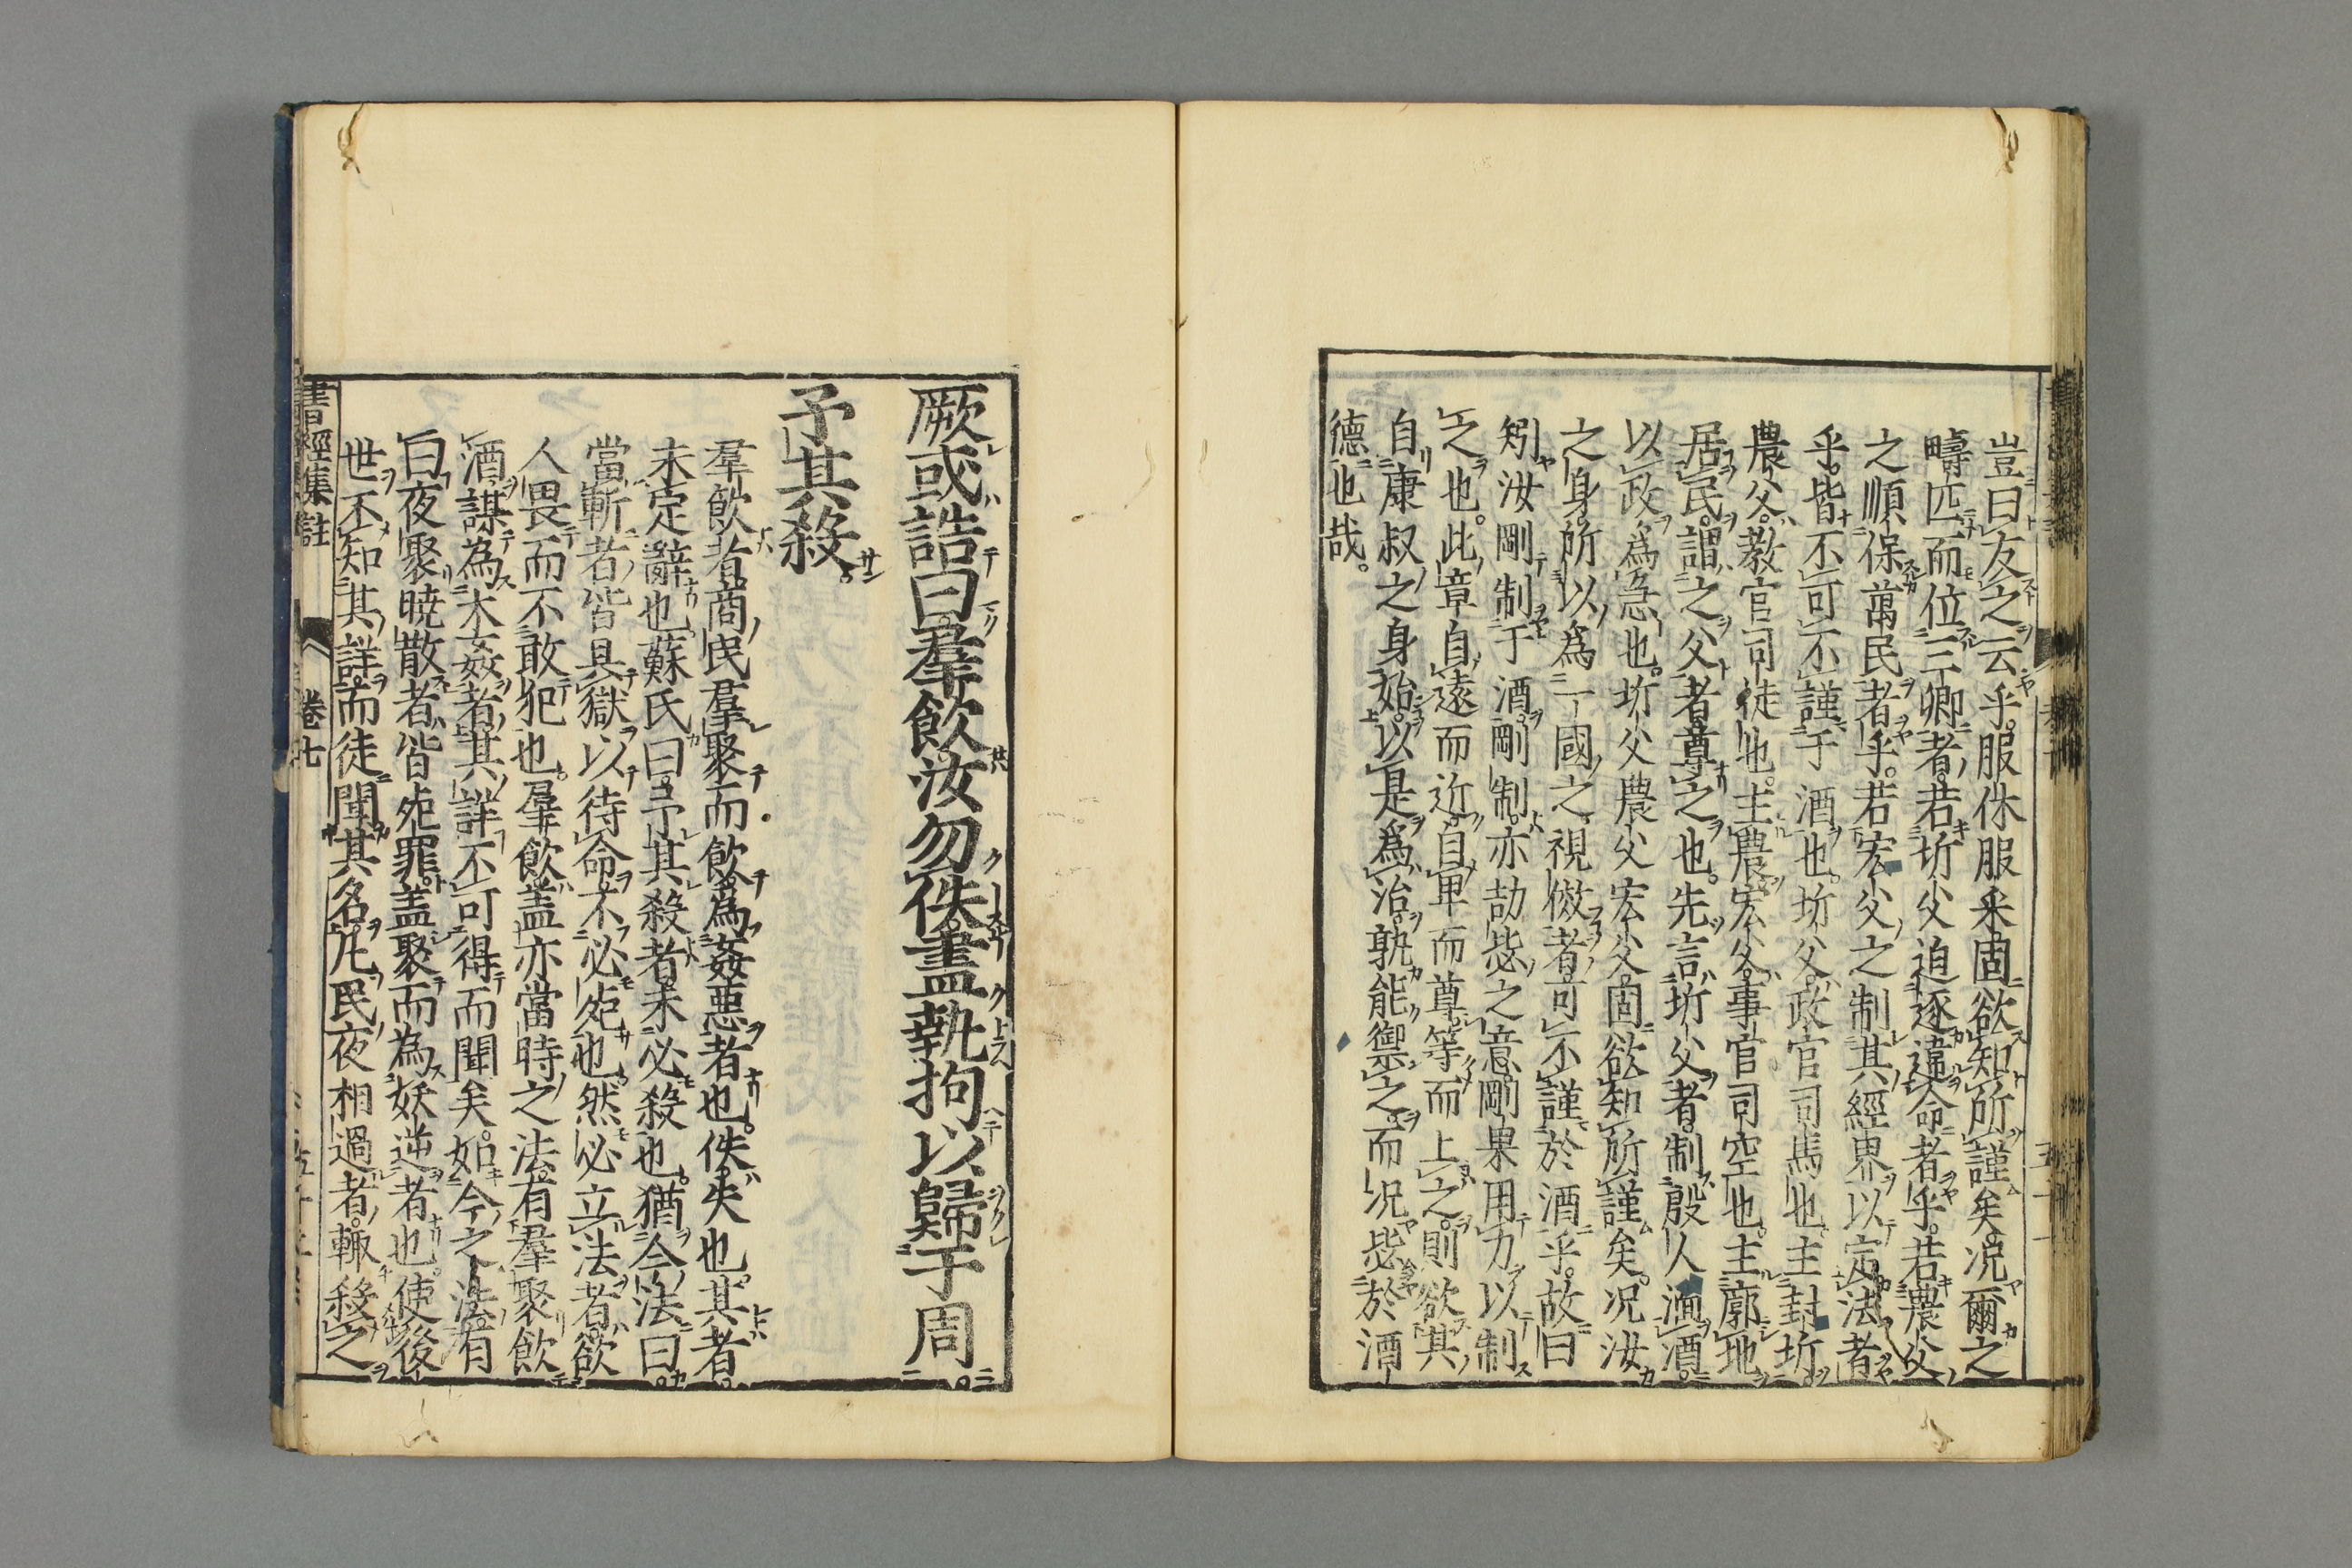 豈曰友之云乎服休服采固欲知所謹矣況爾之
疇匹而位三卿者若圻父迫逐違命者乎若農父
之順保萬民者乎若宏父之制其經界以定法者
乎皆不可不謹于酒也圻父政官司馬也主封圻
農父教官司徒也主農宏父事官司空也主廓地
居民謂之父者尊之也先言圻父者制殷人湎酒
以政為急也圻父農父宏父固欲知所謹矣況汝
之身所以為一國之視傚者可不謹於酒乎故曰
矧汝剛制于酒剛制亦劼毖之意剛果用力以制
之也此章自遠而近自卑而尊等而上之則欲其
自康叔之身始以是為治孰能禦之而況毖於酒
德也哉
厥或誥曰羣飲汝勿佚盡執拘以歸于周
予其殺
羣飲者商民羣聚而飲為姦惡者也佚失也其者
未定辭也蘇氏曰予其殺者未必殺也猶今法曰
當斬者皆具獄以待命不必死也然必立法者欲
人畏而不敢犯也羣飲蓋亦當時之法有羣聚飲
酒謀為大姦者其詳不可得而聞矣如今之法有
曰夜聚曉散者皆死罪蓋聚而為妖逆者也使後
世不知其詳而徒聞其名凡民夜相過者輒殺之
書經集註 卷七